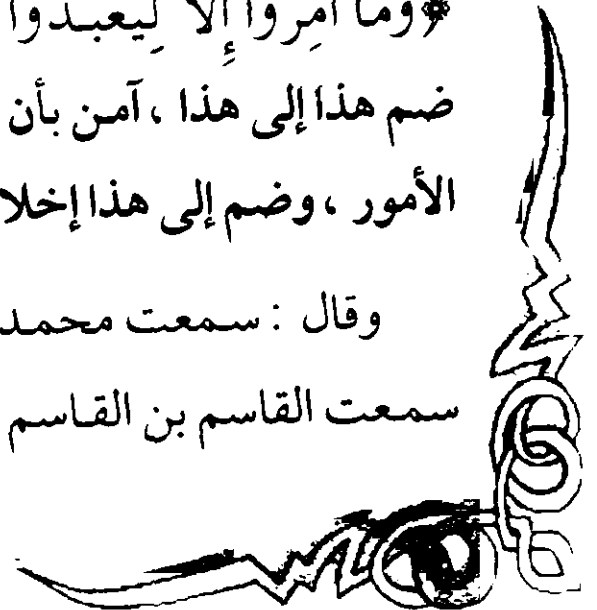 ﴿وما أمروا إلا ليعبدوا
ضم هذا إلى هذا ، آمن بأن
الأمور ، وضم إلى هذا إخلا
وقال : سمعت محمد
سمعت القاسم بن القاسم